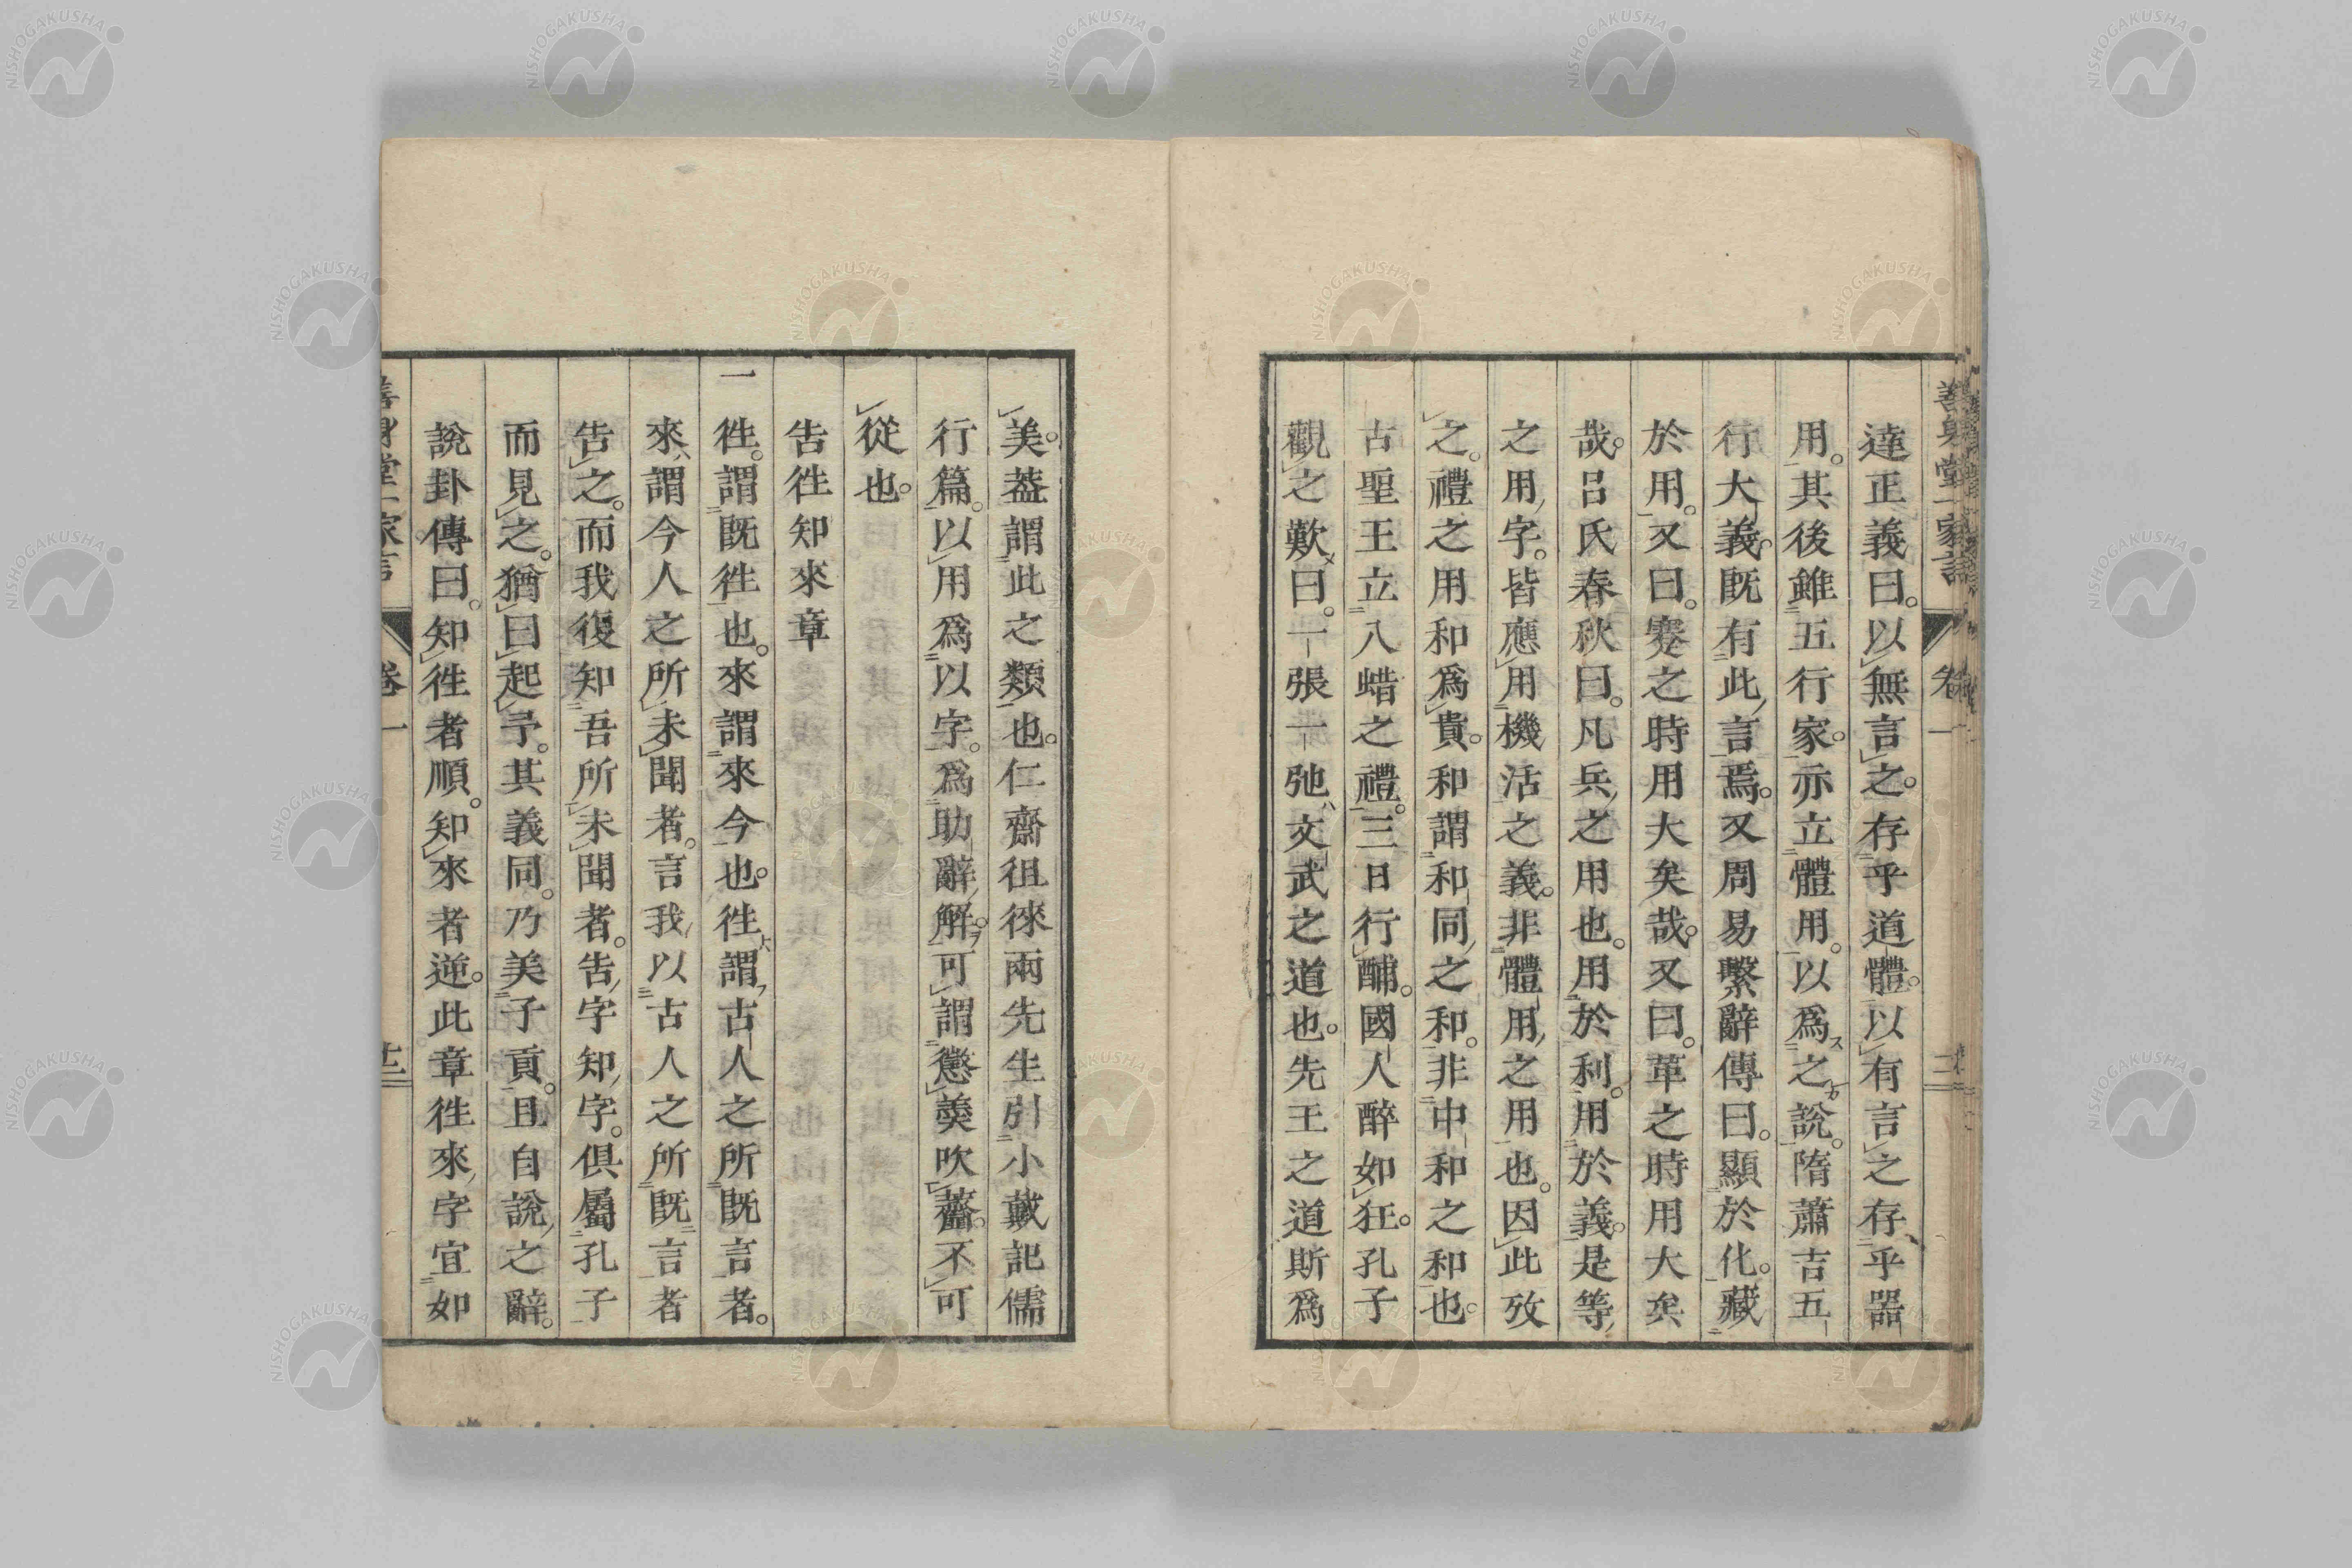 善身堂一家言 卷一
達正義曰。以無言之。存乎道體。以有言之存乎器
用。其後雖五行家。亦立體用。以爲之說。隋蕭吉五
行大義。既有此言焉。又周易繫辭傳曰。顯於化。藏
於用。又曰。蹇之時用大矣哉。又曰。革之時用大矣
哉。呂氏春秋曰。凡兵之用也。用於利。用於義。是等
之用字。皆應用機活之義。非體用之用也。因此攷
之。禮之用和爲貴。和謂和同之和。非中和之和也。
古聖王立八蜡之禮。三日行酺。國人醉如狂。孔子
觀之歎曰。一張一弛文武之道也。先王之道斯爲
美。葢謂此之類也。仁齋徂徠兩先生引小戴記儒
行篇。以用爲以字。爲助辭解。可謂懲羮吹虀。不可
從也。
告徃知來章
一徃。謂既徃也。來謂來今也。徃謂古人之所既言者。
來謂今人之所未聞者。言我以古人之所既言者
告之。而我復知吾所未聞者。告字知字。俱屬孔子
而見之。猶曰起予。其義同。乃美子貢。且自說之辭。
說卦傳曰。知徃者順。知來者逆。此章徃來字宜如
善身堂一家言 卷一 十二